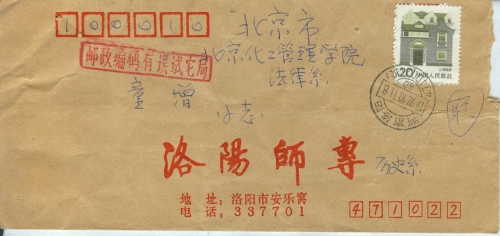 100010
北京市
北京化工管理学院
法律系
邮政编码有误试宅局
童增
同志
20
中国人民邮政
洛陽師專
历史系
地 址：洛阳市安乐窝
电 话，337701
471022